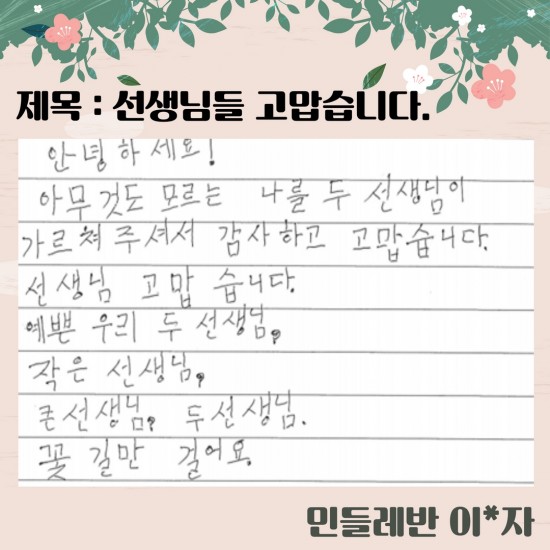 제목 : 선생님들 고압습니다.
안녕하세요!
아무것도 모르는 나를 두 선생님이
가르쳐주셔서 감사하고 고맙습니다.
선생님 고맙 습니다.
예쁜 우리 두 선생님,
작은 선생님,
큰선생님, 두선생님.
꽃 길만 걸어요
인들레반 이*자